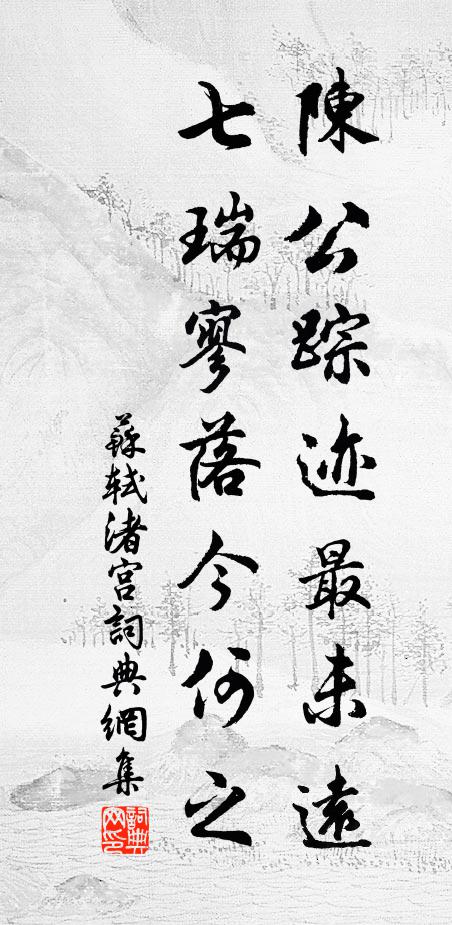 陳公踪迹最未遠
七瑞寥落今何之
蘇軾渚宫詞典網集
詞典
网印